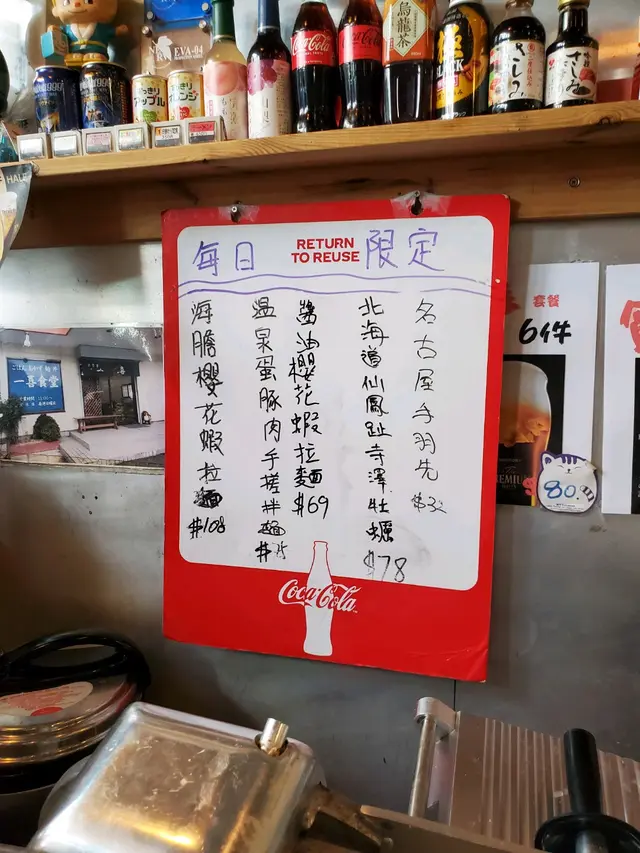 EVA-01
Coca-Cola
Coca-Cola
烏龍茶
極
BLACK
さしみ
さしみ
すっきり
アップル
すっきり
オレンジ
毎日
RETURN
TO REUSE
限定
名古屋手羽先
北海道仙鳳趾寺澤牡蠣
$78
醬油櫻花蝦拉麵
$69
温泉蛋豚肉手搓拌麵
海膽櫻花蝦拉麵
$108
Coca-Cola
一喜食堂
套餐
6件
80